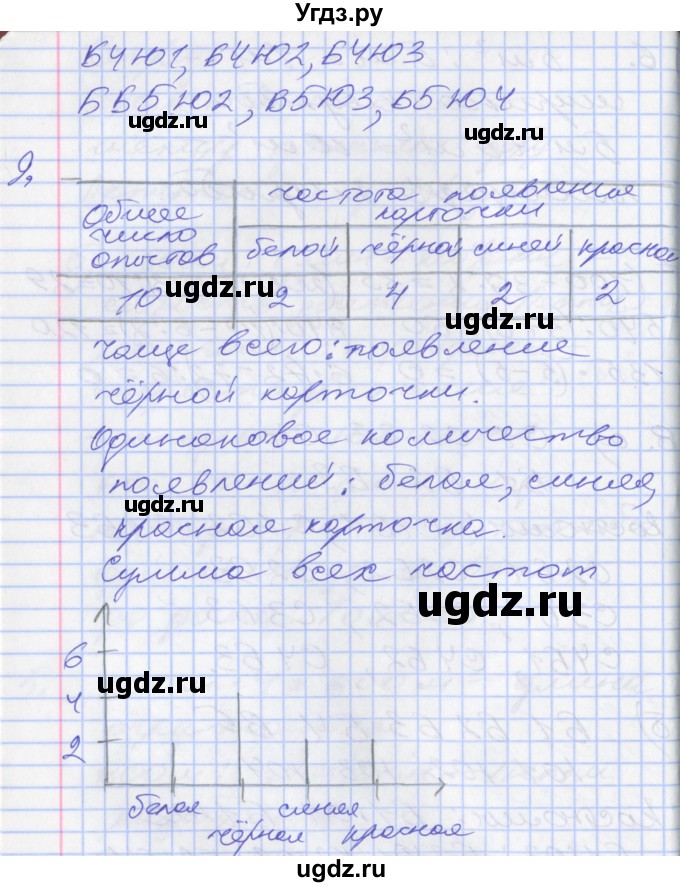 Угдз.ру
Б4Ю1, Б4Ю2, Б4Ю3
ББ5Ю2, В5Ю3, Б5Ю4
ugdz.ru ugdz.ru
9,
частота появления
Общее карточки
число
опытов белой чёрной синей красной
ugdz.ru
10 2 4 2 2
ugdz.ru
чаще всего: появление
чёрной карточки.
Одинаковое количество
появлений: белая, синяя,
ugdz.ru
красная карточка.
Сумма всех частот
ugdz.ru
6
ugdz.ru
4
2
белая синяя
чёрная красная
ugdz.ru